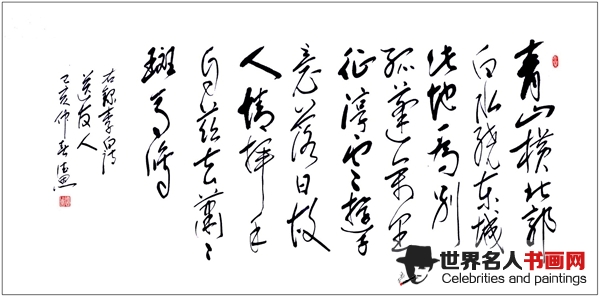 青山横北郭
白水绕东城
此地为别
孤蓬万里
征浮云游子
意落日故
人情挥手
自兹去萧萧
斑马鸣
右录李白诗
送友人
亥仲春
世界名人书画网
Celebrities and paintings